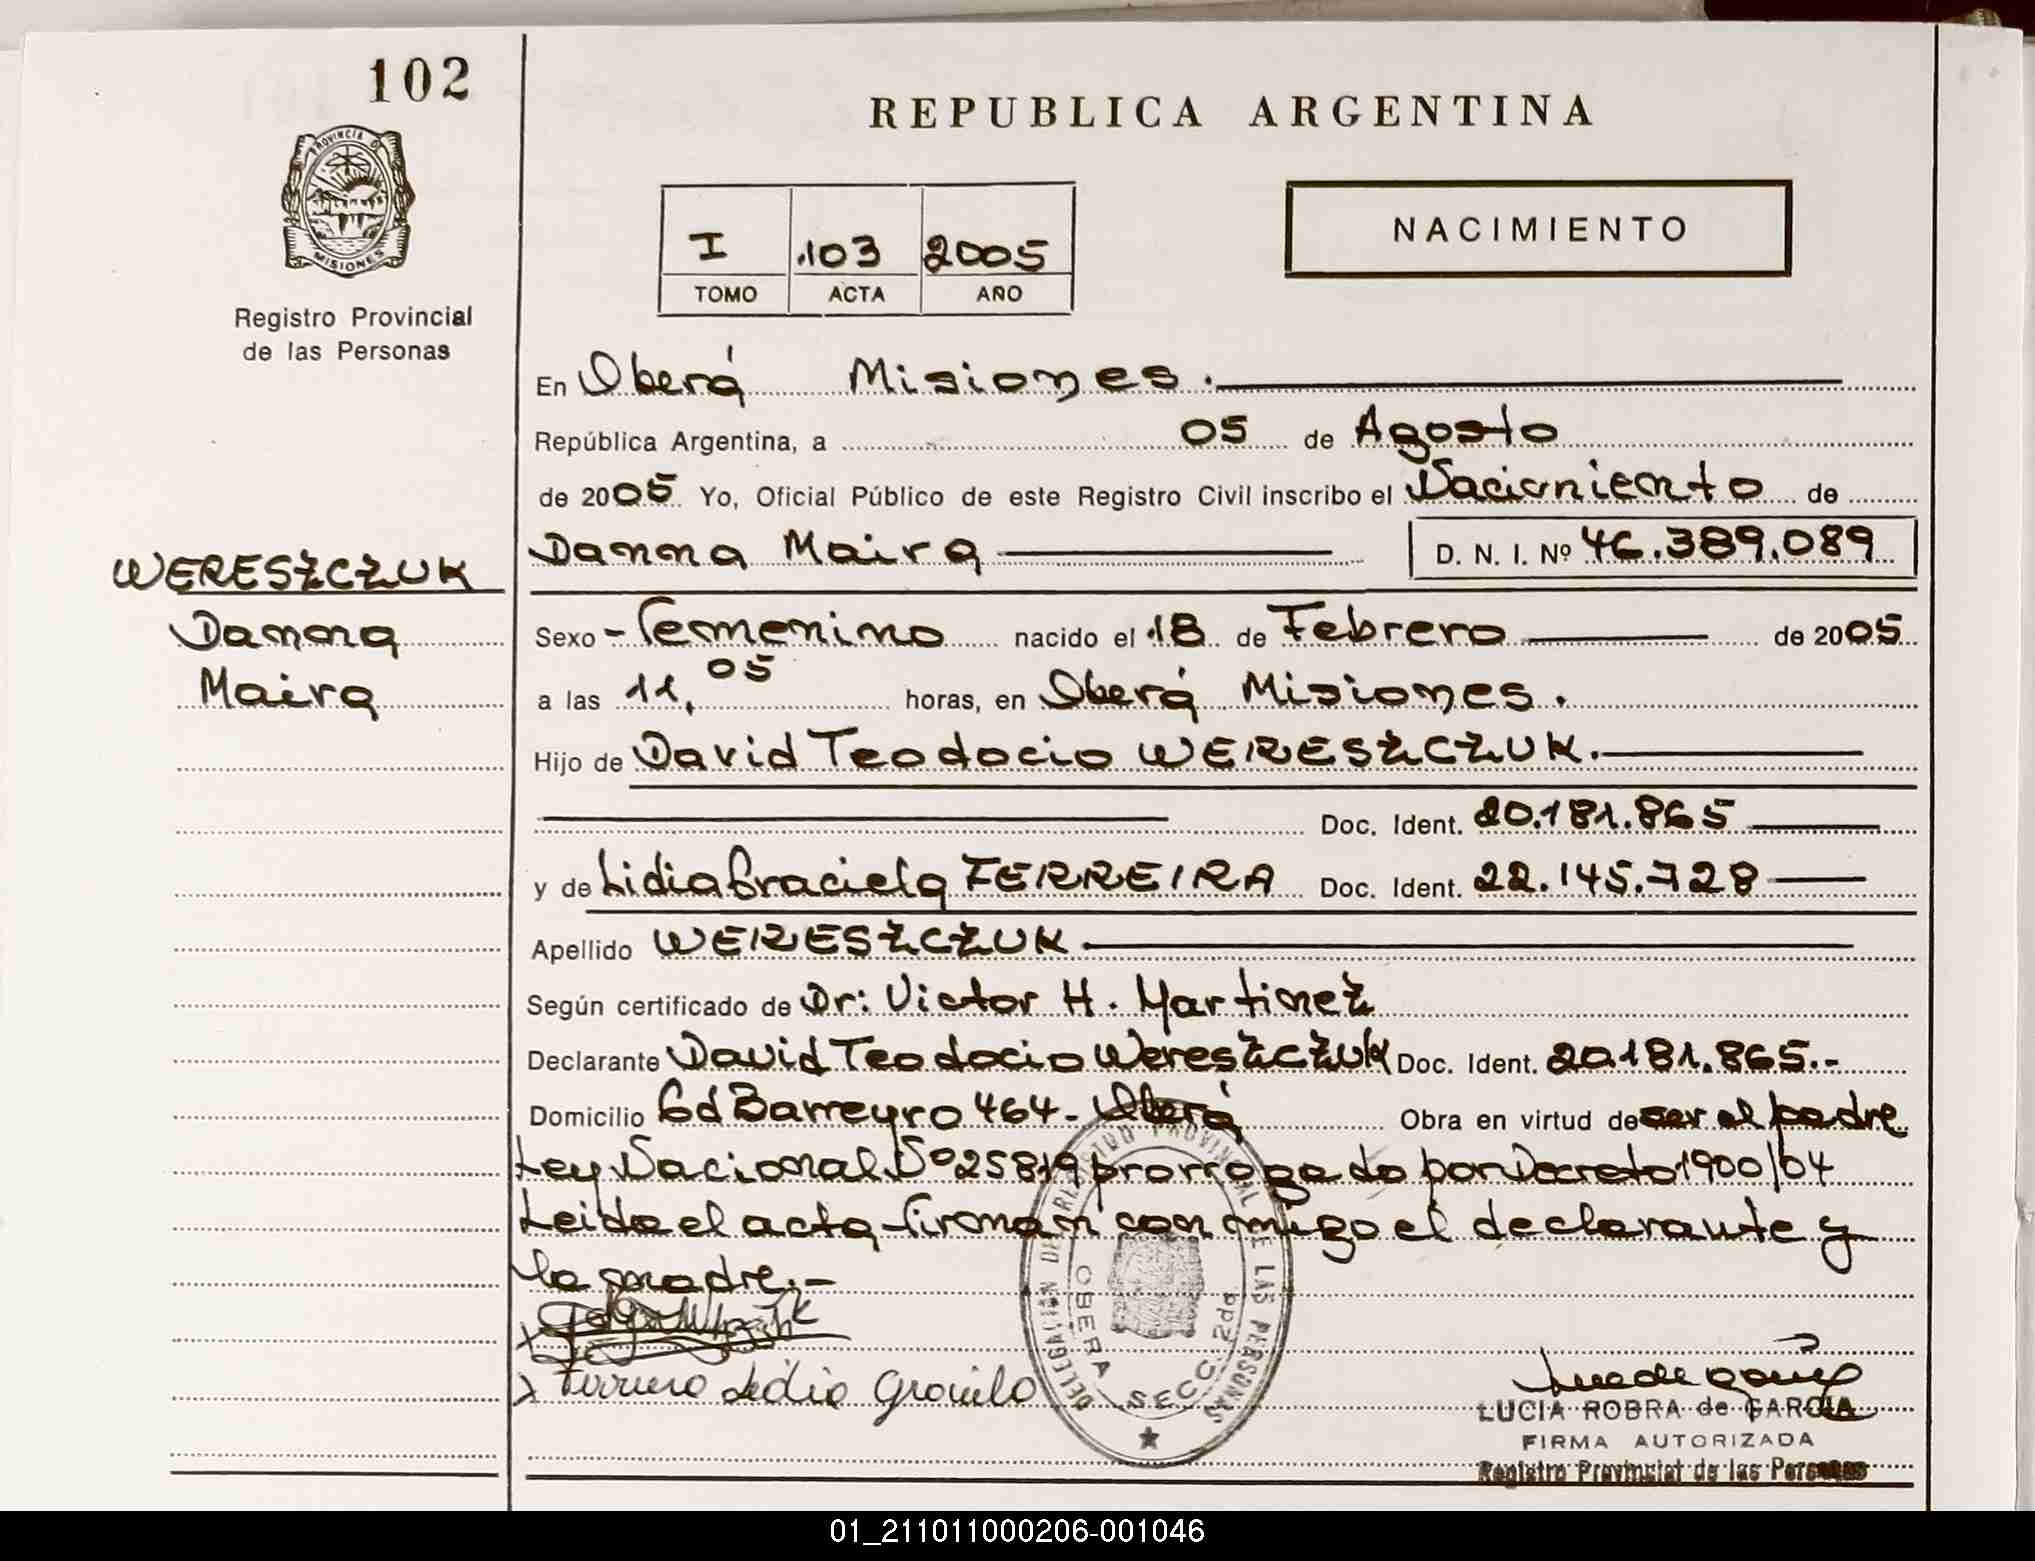 102
REPUBLICA ARGENTINA
PROVINCIA D
MISIONES
Registro Provincial
de las Personas
I 103 2005
TOMO ACTA AÑO
NACIMIENTO
En Oberá Misiones.
República Argentina, a 05 de Agosto
de 2005 Yo, Oficial Público de este Registro Civil inscribo el Nacimiento de
Danna Maira D. N. I. Nº 46.389.089
WERESZCZUK
Danna
Maira
Sexo - Femenino nacido el 18 de Febrero de 2005
a las 11,05 horas, en Oberá Misiones.
Hijo de David Teodocio WERESZCZUK.
Doc. Ident. 20.181.865
y de Lidia Graciela FERREIRA Doc. Ident. 22.145.728
Apellido WERESZCZUK
Según certificado de Dr: Victor H. Martinez
Declarante David Teodocio WeresZCZUK Doc. Ident. 20.181.865.-
Domicilio Gd Barreyro 464 - Oberá Obra en virtud de ser el padre
Ley Nacional Nº 25819 prorrogado por Decreto 1900/04
Leida el acta firman conmigo el declarante y
la madre.-
Lidia
DELEGACION DEL REGISTRO PROVINCIAL DE LAS PERSONAS
OBERA SECC. 2da
LUCIA ROBRA de GARCIA
FIRMA AUTORIZADA
Registro Provincial de las Personas
01_211011000206-001046